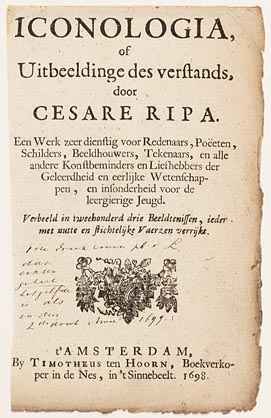 ICONOLOGIA,
of
Uitbeeldinge des verstands,
door
CESARE RIPA.
Een Werk zeer dienstig voor Redenaars, Poëeten,
Schilders, Beeldhouwers, Tekenaars, en alle
andere Konstbeminders en Liefhebbers der
Geleerdheid en eerlijke Wetenschap-
pen, en insonderheid voor de
leergierige Jeugd.
Verbeeld in tweehonderd drie Beeldtenissen, ieder
met nutte en stichtelijke Vaerzen verrijkt.
dat
is als
in den
1699.
t'AMSTERDAM,
By TIMOTHEUS ten HOORN, Boekverko-
per in de Nes, in 't Sinnebeelt. 1698.